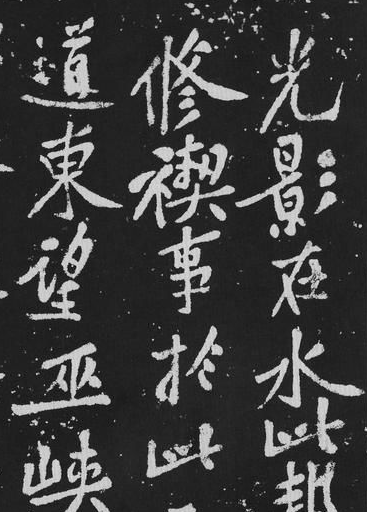 光影在水此邦
修禊事於此
道東望巫峽